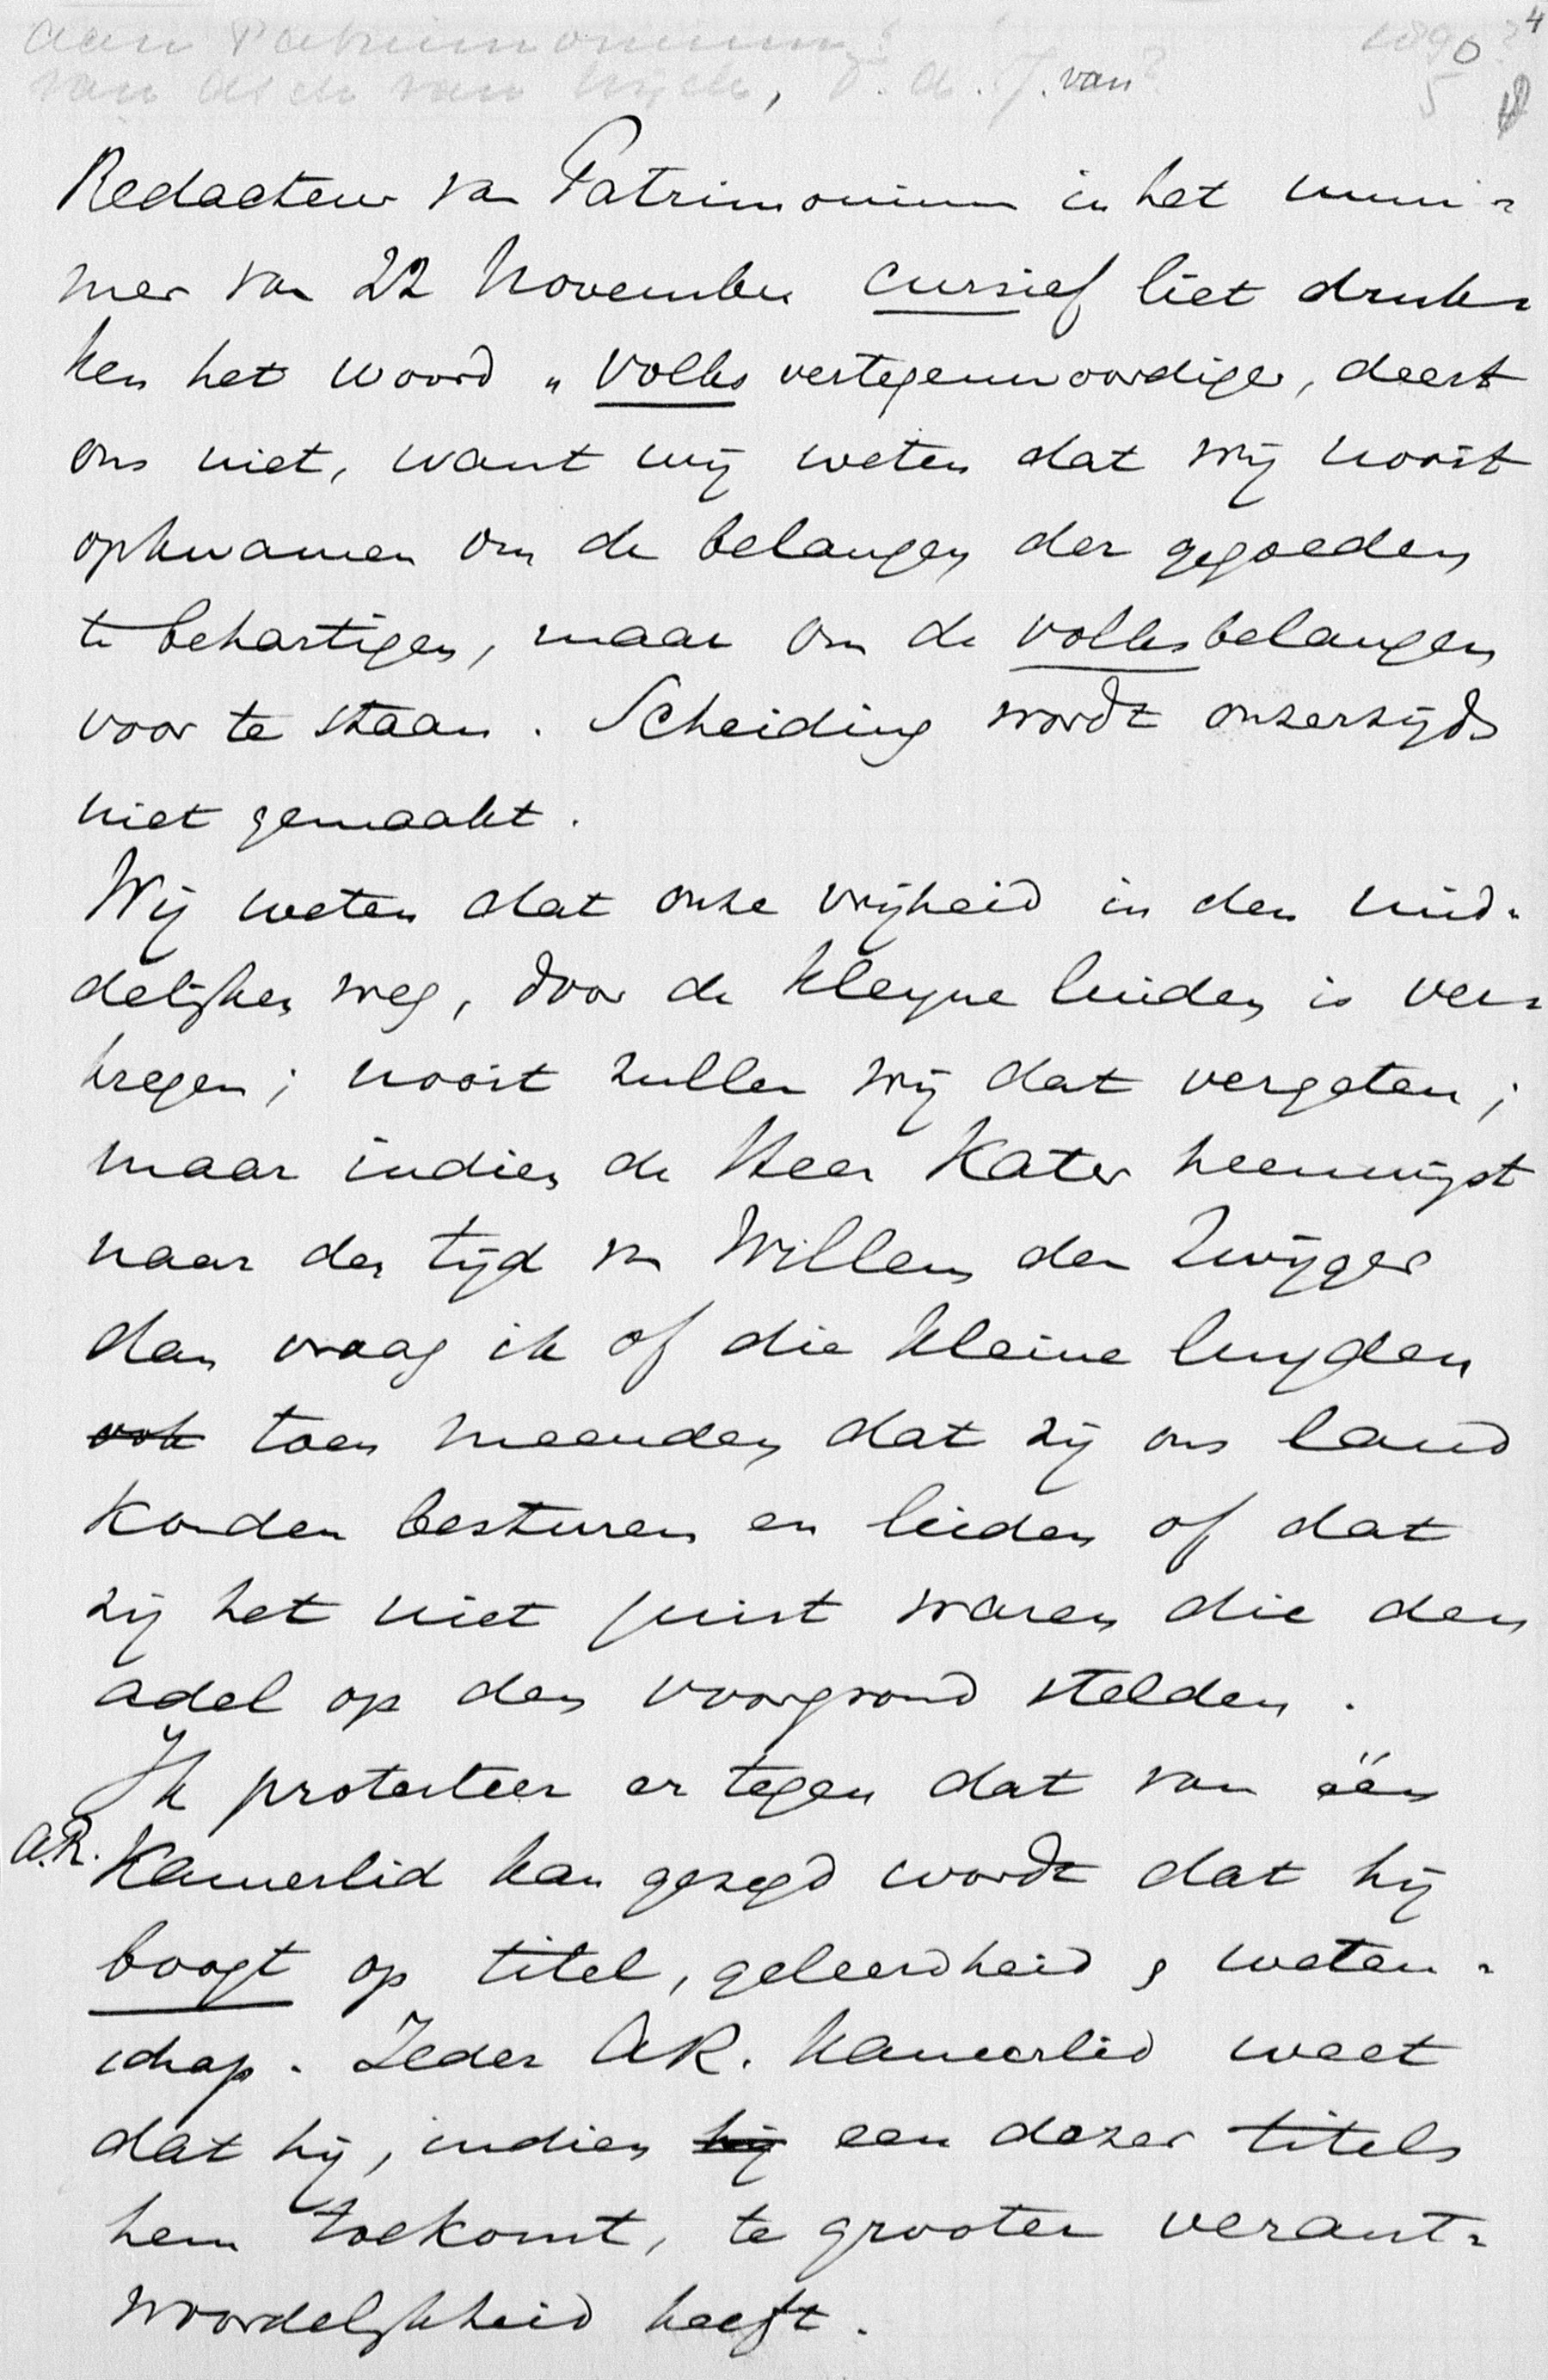 aan Patrimonium
van
Redacteur van Patrimonium in het num-
mer van 22 November cursief liet druk-
ken het woord „volksvertegenwoordiger, deert
ons niet, want wij weten dat wij nooit
opkwamen om de belangen der gegoeden
te behartigen, maar om de volksbelangen
voor te staan. Scheiding wordt onzerzijds
niet gemaakt.
Wij weten dat onze vrijheid in den mid-
delijken weg, door de kleyne luiden is ver-
kregen; nooit zullen wij dat vergeten;
maar indien de Heer Kater heenwijst
naar den tijd van Willem den Zwijger
dan vraag ik of die kleine luyden
ook toen meenden dat zij ons land
konden besturen en leiden of dat
zij het niet juist waren die den
adel op den voorgrond stelden.
Ik protesteer er tegen dat van één
A.R. Kamerlid kan gezegd wordt dat hij
boogt op titel, geleerdheid & weten-
schap. Ieder AR. Kamerlid weet
dat hij, indien hij een dezer titels
hem toekomt, te grooter verant-
woordelijkheid heeft.